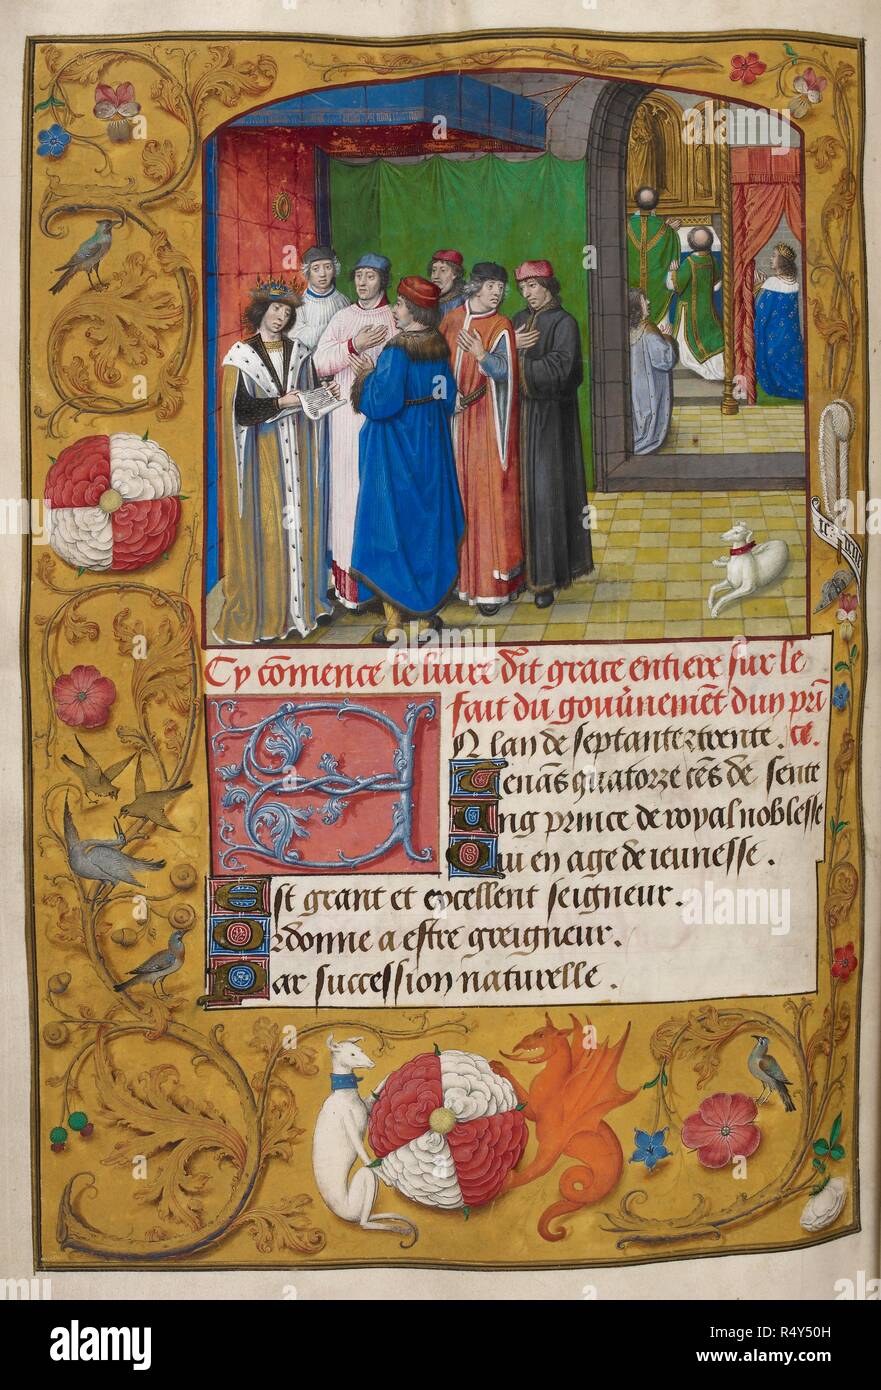 Cy cõmence le liure dit grace entiere sur le
fait du gouũnemẽt dun prĩ
EN lan de septante z trente . ce.
quatorze cẽs de sente
Ung prince de royal noblesse
Qui en age de ieunesse .
Est grant et excellent seigneur .
Ordonne a estre greigneur .
Par succession naturelle .
alamy
Image ID: R4Y50H
www.alamy.com